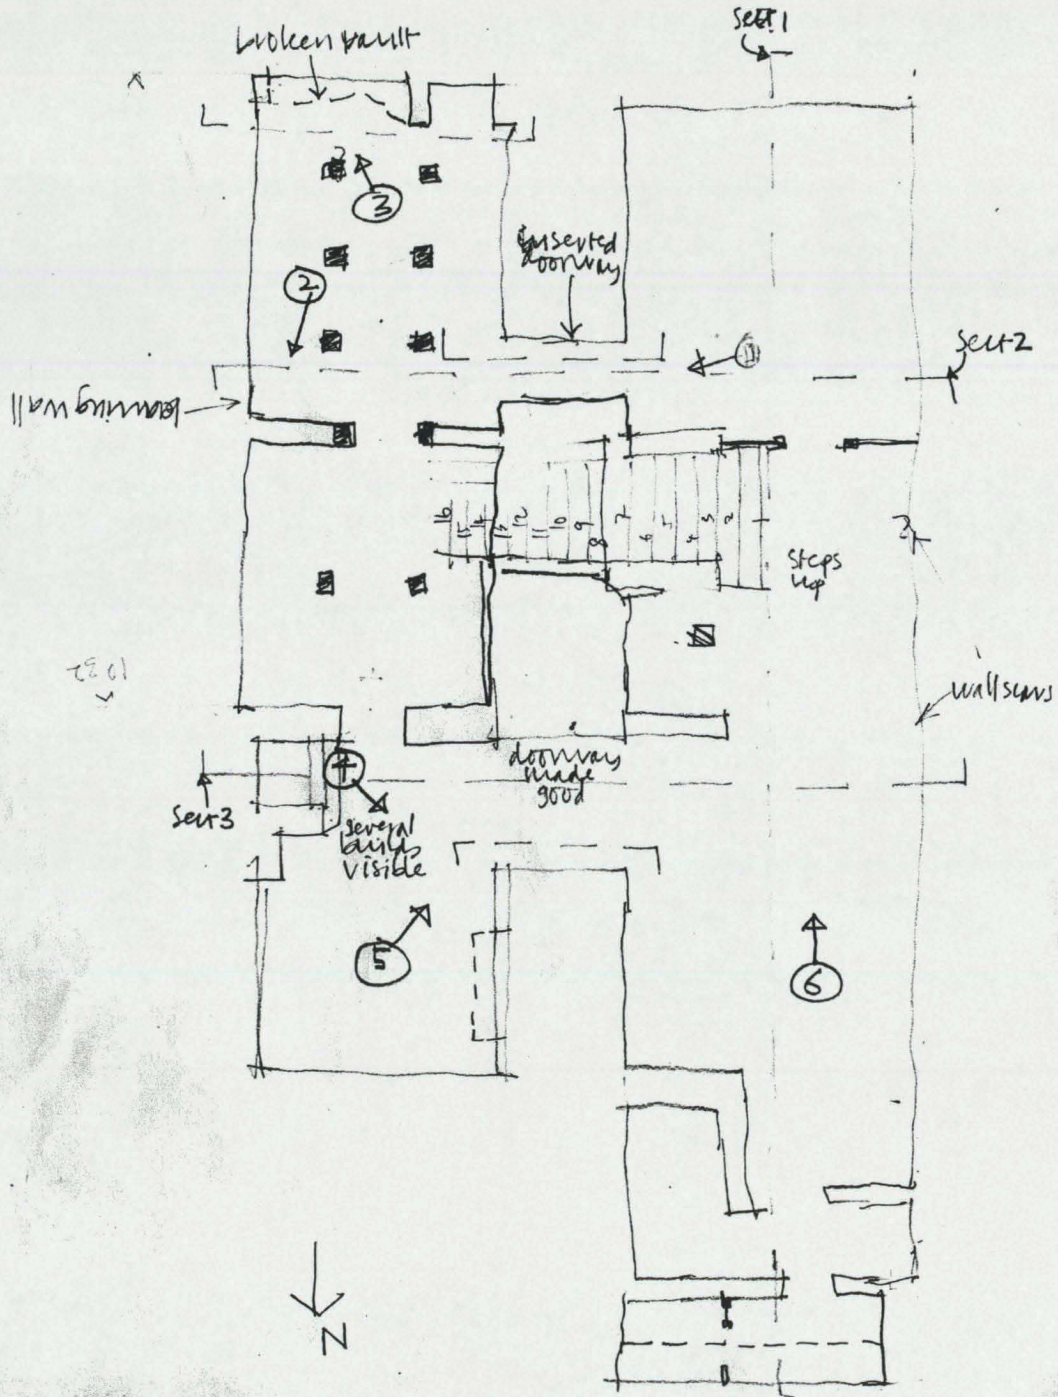 Sect 1
broken vault
3
inserted
doorway
2
1
Sect 2
16
15
14
13
12
11
10
9
8
7
6
5
4
3
2
1
steps
up
wall scars
doorway
made
good
4
Sect 3
several
builds
visible
5
6
N